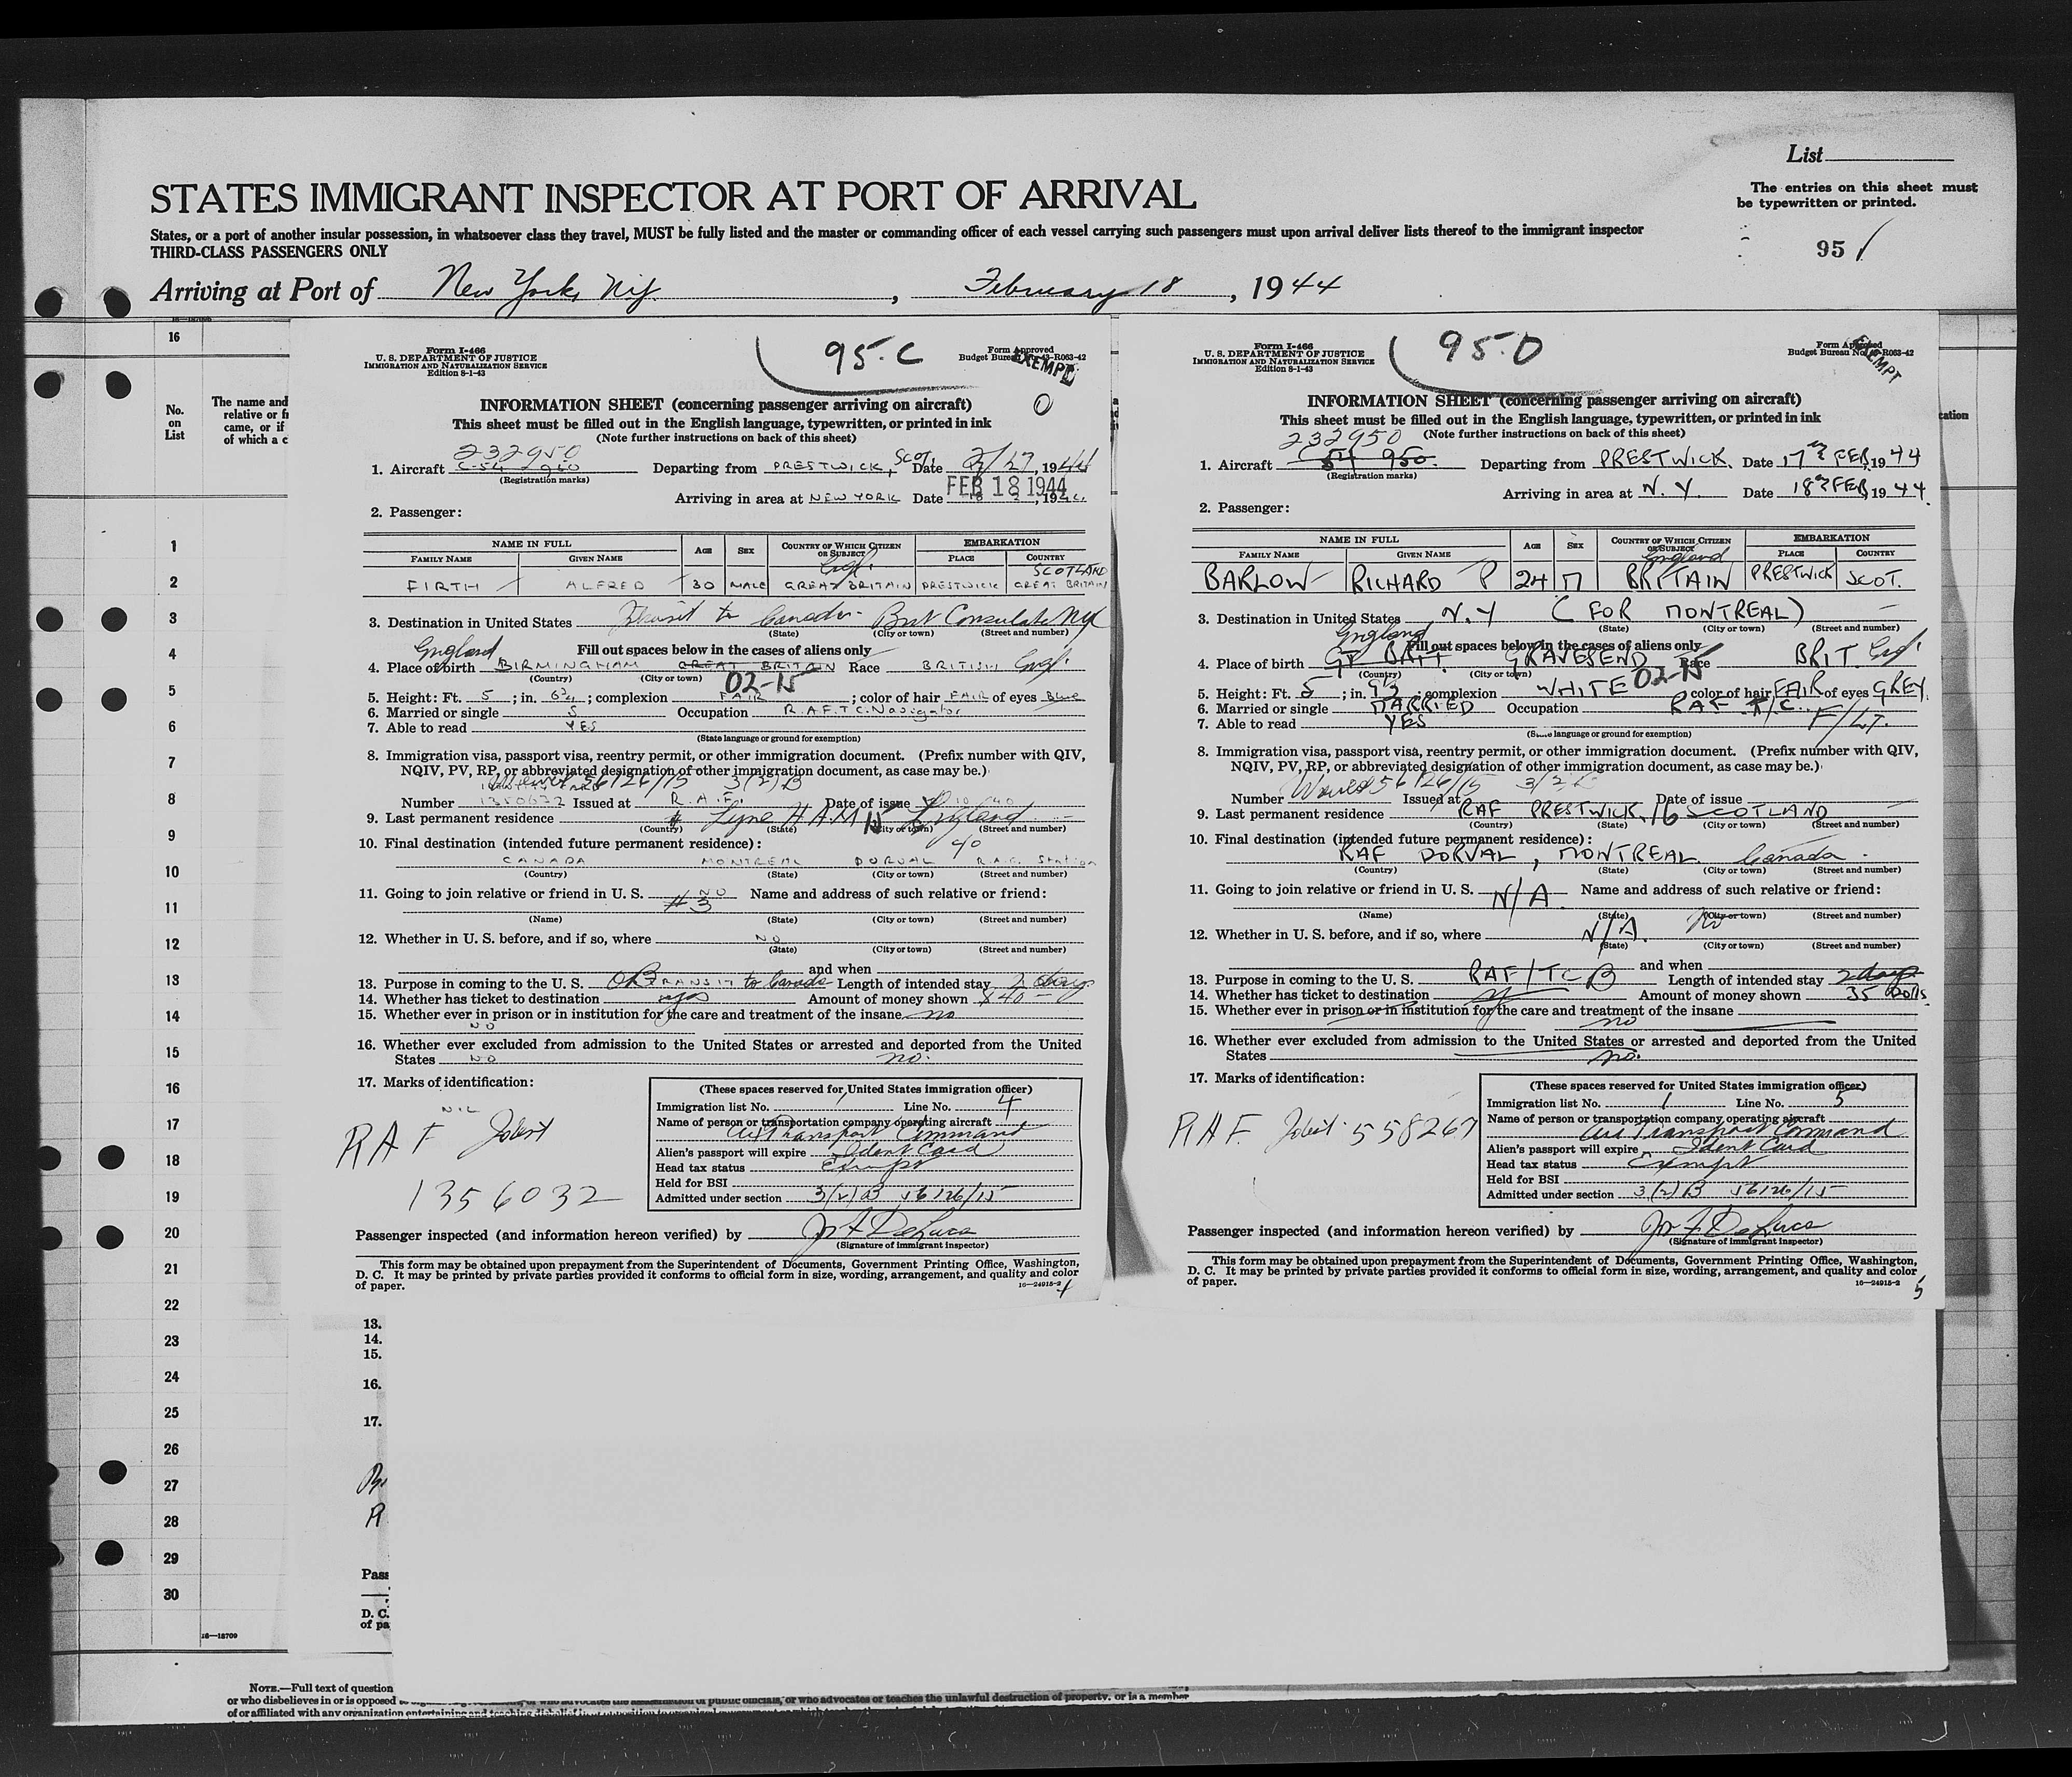 List
STATES IMMIGRANT INSPECTOR AT PORT OF ARRIVAL
The entries on this sheet must
be typewritten or printed.
States, or a port of another insular possession, in whatsoever class they travel, MUST be fully listed and the master or commanding officer of each vessel carrying such passengers must upon arrival deliver lists thereof to the immigrant inspector
THIRD-CLASS PASSENGERS ONLY
95
Arriving at Port of New York, N.Y. , February 18 , 1944
16
No.
on
List
The name and
relative or fr
came, or if
of which a c
1
2
3
4
5
6
7
8
9
10
11
12
13
14
15
16
17
18
19
20
21
22
23
24
25
26
27
28
29
30
16—18709
Form I-466
U. S. DEPARTMENT OF JUSTICE
IMMIGRATION AND NATURALIZATION SERVICE
Edition 8-1-43
95-C
Form Approved
Budget Bureau No. 43-R063-42
EXEMPT
INFORMATION SHEET (concerning passenger arriving on aircraft)
This sheet must be filled out in the English language, typewritten, or printed in ink
(Note further instructions on back of this sheet)
232950
1. Aircraft C-54 950 Departing from PRESTWICK, Scot. Date 1944
(Registration marks)
FEB 18 1944
Arriving in area at NEW YORK Date , 194
2. Passenger:
NAME IN FULL AGE SEX COUNTRY OF WHICH CITIZEN OR SUBJECT EMBARKATION
FAMILY NAME GIVEN NAME PLACE COUNTRY
Engl. SCOTLAND
FIRTH ALFRED 30 MALE GREAT BRITAIN PRESTWICK GREAT BRITAIN
3. Destination in United States Transit to Canada - Brit Consulate NY
(State) (City or town) (Street and number)
Fill out spaces below in the cases of aliens only
England
4. Place of birth BIRMINGHAM GREAT BRITAIN Race BRITISH Engl.
(Country) (City or town)
02-15
5. Height: Ft. 5 ; in. 6¾ ; complexion FAIR ; color of hair FAIR of eyes Blue
6. Married or single S Occupation R.A.F.T.C. Navigator
7. Able to read YES
(State language or ground for exemption)
8. Immigration visa, passport visa, reentry permit, or other immigration document. (Prefix number with QIV,
NQIV, PV, RP, or abbreviated designation of other immigration document, as case may be.)
56126/15 3(2)B
Number Issued at R.A.F. Date of issue
9. Last permanent residence England
(Country) (State) (City or town) (Street and number)
10. Final destination (intended future permanent residence):
CANADA MONTREAL DORVAL R.A.F. Station
(Country) (State) (City or town) (Street and number)
11. Going to join relative or friend in U. S. NO Name and address of such relative or friend:
#3
(Name) (State) (City or town) (Street and number)
12. Whether in U. S. before, and if so, where NO
(State) (City or town) (Street and number)
and when
13. Purpose in coming to the U. S. OB TRANSIT to Canada Length of intended stay 2 days
14. Whether has ticket to destination yes Amount of money shown $40—
15. Whether ever in prison or in institution for the care and treatment of the insane no
NO
16. Whether ever excluded from admission to the United States or arrested and deported from the United
States NO no.
17. Marks of identification:
NIL
RAF
1356032
(These spaces reserved for United States immigration officer)
Immigration list No. 1 Line No. 4
Name of person or transportation company operating aircraft
Air Transport Command
Alien's passport will expire Ident Card
Head tax status Exempt
Held for BSI
Admitted under section 3(2)B 56126/15
Passenger inspected (and information hereon verified) by
(Signature of immigrant inspector)
This form may be obtained upon prepayment from the Superintendent of Documents, Government Printing Office, Washington,
D. C. It may be printed by private parties provided it conforms to official form in size, wording, arrangement, and quality and color
of paper.
16—24915-2
4
Form I-466
U. S. DEPARTMENT OF JUSTICE
IMMIGRATION AND NATURALIZATION SERVICE
Edition 8-1-43
95-D
Form Approved
Budget Bureau No. 43-R063-42
EXEMPT
INFORMATION SHEET (concerning passenger arriving on aircraft)
This sheet must be filled out in the English language, typewritten, or printed in ink
(Note further instructions on back of this sheet)
232950
1. Aircraft C54 950. Departing from PRESTWICK. Date 17th FEB, 1944
(Registration marks)
Arriving in area at N.Y. Date 18th FEB, 1944.
2. Passenger:
NAME IN FULL AGE SEX COUNTRY OF WHICH CITIZEN OR SUBJECT EMBARKATION
FAMILY NAME GIVEN NAME PLACE COUNTRY
England
BARLOW RICHARD P 24 M BRITAIN PRESTWICK SCOT.
3. Destination in United States N.Y (FOR MONTREAL)
(State) (City or town) (Street and number)
England
Fill out spaces below in the cases of aliens only
4. Place of birth GT BRIT. GRAVESEND Race BRIT. Engl.
(Country) (City or town)
02-15
5. Height: Ft. 5 ; in. 9½ ; complexion WHITE color of hair FAIR of eyes GREY.
6. Married or single MARRIED Occupation RAF T/C. F/LT.
7. Able to read YES
(State language or ground for exemption)
8. Immigration visa, passport visa, reentry permit, or other immigration document. (Prefix number with QIV,
NQIV, PV, RP, or abbreviated designation of other immigration document, as case may be.)
Number 56126/15 Issued at Date of issue
9. Last permanent residence RAF PRESTWICK, 16 SCOTLAND
(Country) (State) (City or town) (Street and number)
10. Final destination (intended future permanent residence):
RAF DORVAL, MONTREAL Canada.
(Country) (State) (City or town) (Street and number)
11. Going to join relative or friend in U. S. N/A. Name and address of such relative or friend:
(Name) (State) (City or town) (Street and number)
12. Whether in U. S. before, and if so, where N/A. no
(State) (City or town) (Street and number)
and when
13. Purpose in coming to the U. S. RAF/TC B Length of intended stay 2 days
14. Whether has ticket to destination Amount of money shown 35 Dolls.
15. Whether ever in prison or in institution for the care and treatment of the insane
no
16. Whether ever excluded from admission to the United States or arrested and deported from the United
States no.
17. Marks of identification:
RAF 558267
(These spaces reserved for United States immigration officer)
Immigration list No. 1 Line No. 5
Name of person or transportation company operating aircraft
Air Transport Command
Alien's passport will expire Ident Card
Head tax status Exempt
Held for BSI
Admitted under section 3(2)B 56126/15
Passenger inspected (and information hereon verified) by
(Signature of immigrant inspector)
This form may be obtained upon prepayment from the Superintendent of Documents, Government Printing Office, Washington,
D. C. It may be printed by private parties provided it conforms to official form in size, wording, arrangement, and quality and color
of paper.
16—24915-2
5
13.
14.
15.
16.
17.
R
Pass
D. C.
of pa
NOTE.—Full text of question
or who disbelieves in or is opposed
of or affiliated with any organization entertaining and teaching